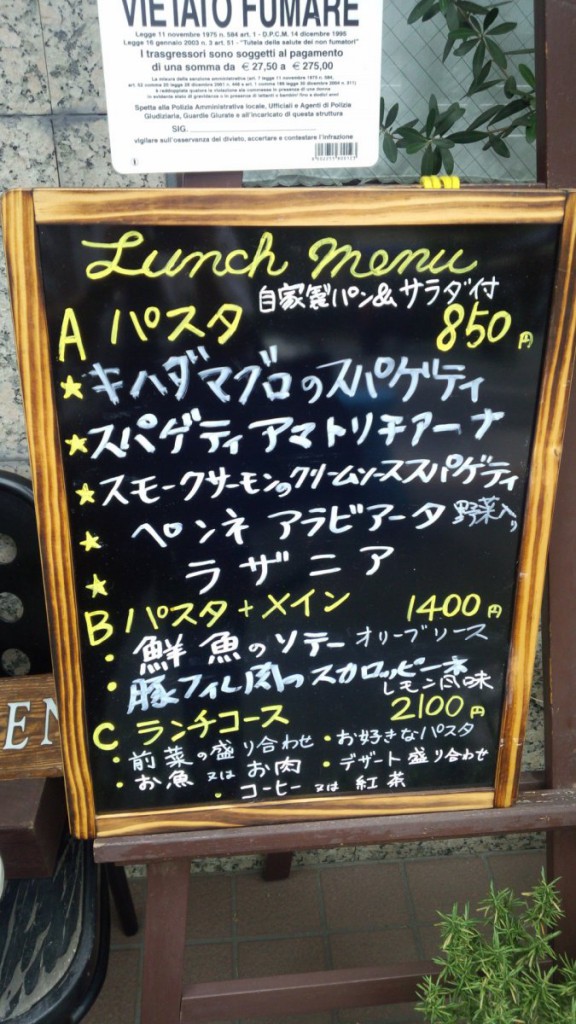 VIETATO FUMARE
Legge 11 novembre 1975 n. 584 art. 1 - D.P.C.M. 14 dicembre 1995
Legge 16 gennaio 2003 n. 3 art. 51 - "Tutela della salute dei non fumatori"
I trasgressori sono soggetti al pagamento
di una somma da € 27,50 a € 275,00
Spetta alla Polizia Amministrativa locale, Ufficiali e Agenti di Polizia
Giudiziaria, Guardie Giurate e all'incaricato di questa struttura
SIG.
vigilare sull'osservanza del divieto, accertare e contestare l'infrazione
Lunch menu
自家製パン&サラダ付
A パスタ 850円
★キハダマグロのスパゲティ
★スパゲティアマトリチアーナ
★スモークサーモンのクリームソーススパゲティ
★ペンネ アラビアータ 野菜入り
★ラザニア
B パスタ+メイン 1400円
・鮮魚のソテー オリーブソース
・豚フィレ肉のスカロッピーネ
レモン風味
C ランチコース 2100円
・前菜の盛り合わせ ・お好きなパスタ
・お魚 又は お肉 ・デザート盛り合わせ
・コーヒー 又は 紅茶
EN